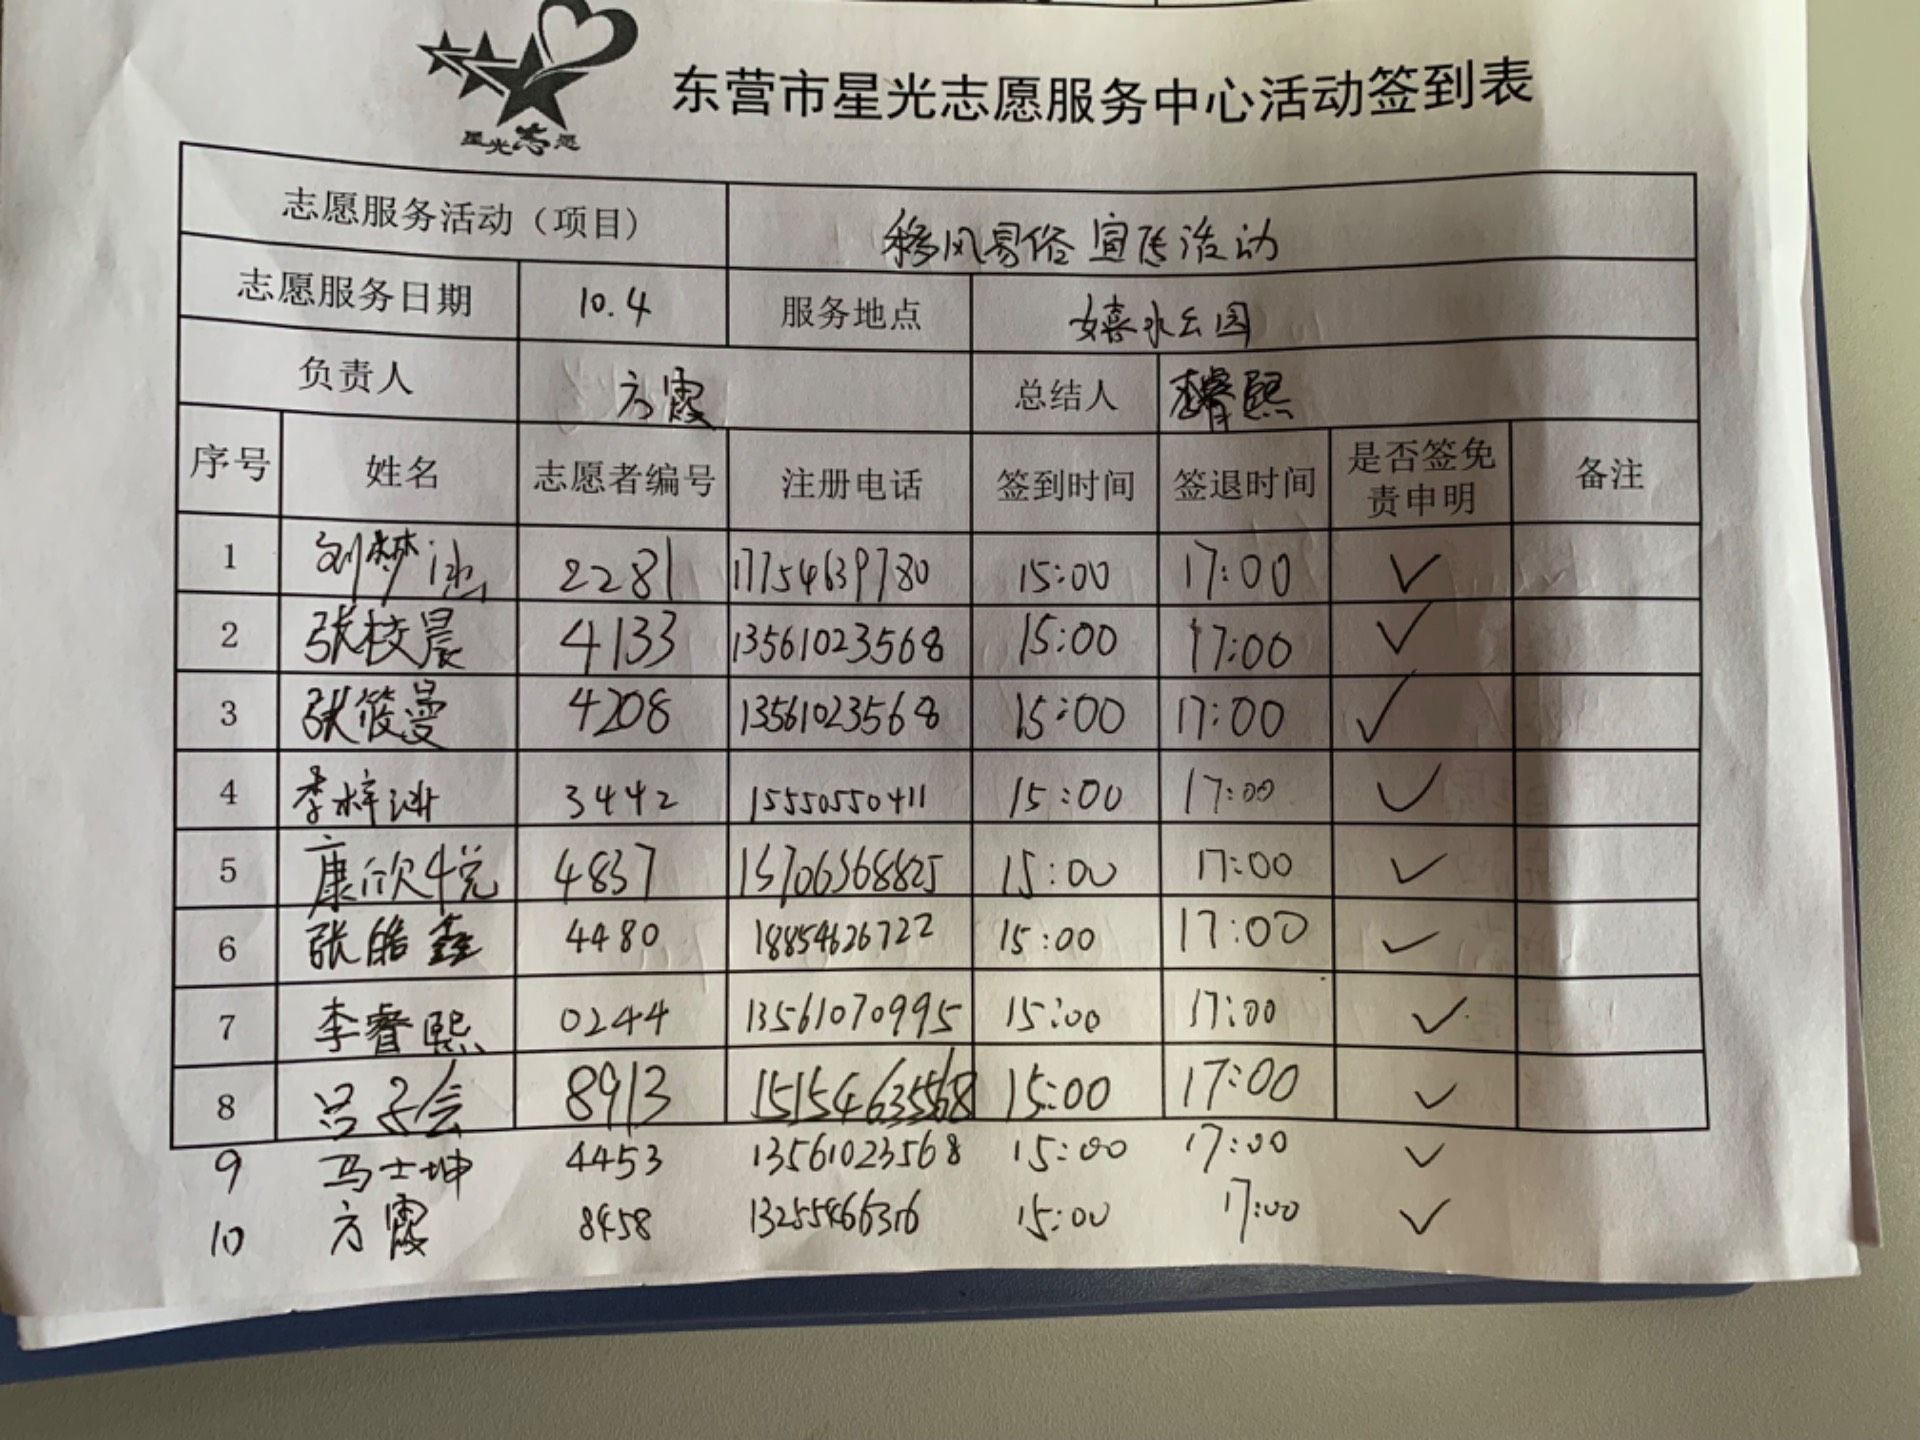 星光志愿
东营市星光志愿服务中心活动签到表
志愿服务活动（项目） 移风易俗宣传活动
志愿服务日期 10.4 服务地点 嬉水公园
负责人 方霞 总结人 李睿熙
序号 姓名 志愿者编号 注册电话 签到时间 签退时间 是否签免责申明 备注
1 刘梦涵 2281 17754639780 15:00 17:00 ✓
2 张校晨 4133 13561023568 15:00 17:00 ✓
3 张筱曼 4208 13561023568 15:00 17:00 ✓
4 李梓 3442 15550550411 15:00 17:00 ✓
5 康欣悦 4837 13706368825 15:00 17:00 ✓
6 张皓鑫 4480 18854626722 15:00 17:00 ✓
7 李睿熙 0244 13561070995 15:00 17:00 ✓
8 吕子会 8913 15154635568 15:00 17:00 ✓
9 马士坤 4453 13561023568 15:00 17:00 ✓
10 方霞 8458 13255466316 15:00 17:00 ✓